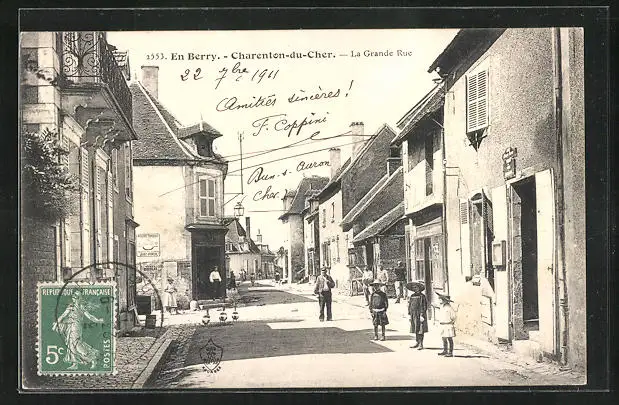 2553. En Berry. - Charenton-du-Cher. — La Grande Rue
22 7bre 1911
Amitiés sincères!
F. Coppin
Bun-s-Auron
Cher
REPUBLIQUE FRANÇAISE
5c
POSTES